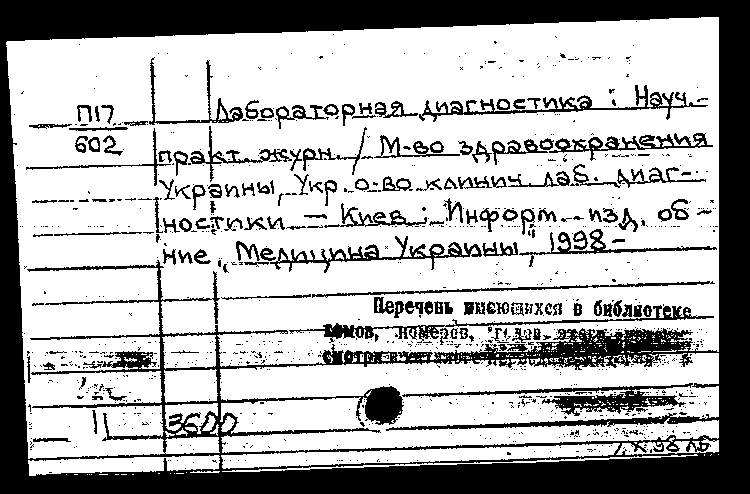 П17
602
Лабораторная диагностика : Науч.-
практ. журн. / М-во здравоохранения
Украины, Укр. о-во клинич. лаб. диаг-
ностики — Киев : Информ. изд. об-
ние „Медицина Украины", 1998 –
Перечень имеющихся в библиотеке
томов, номеров,
смотри
11
3600